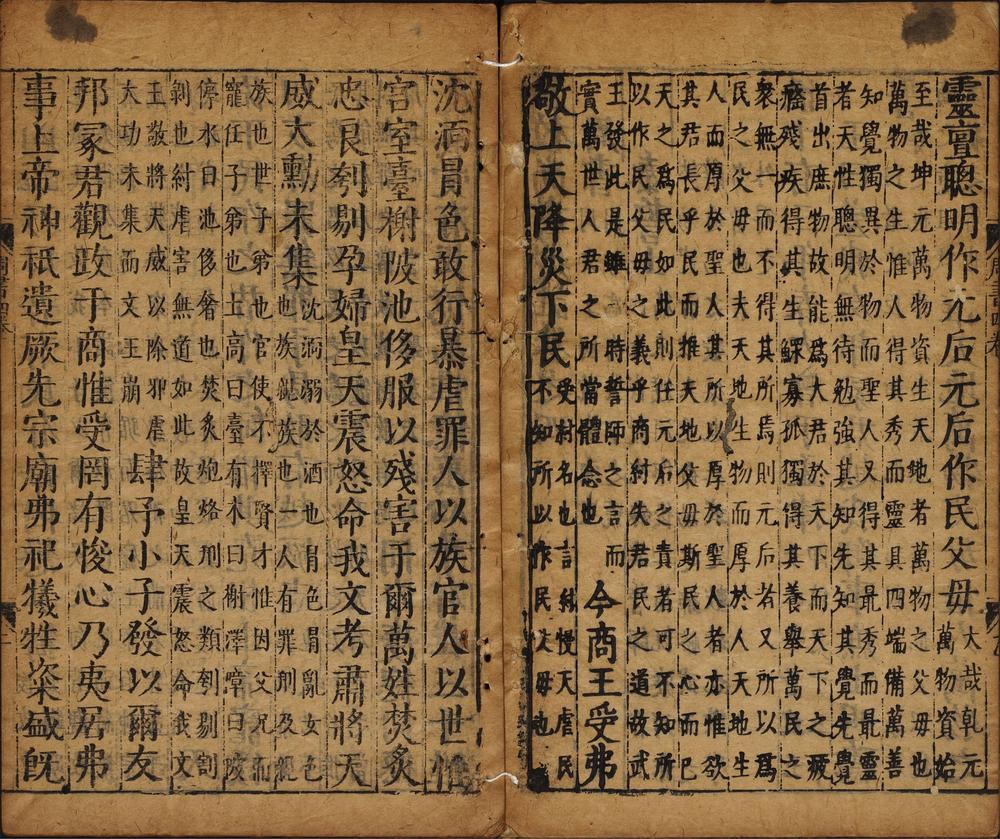 靈亶聰明作元后元后作民父母大哉乾元萬物資始
至哉坤元萬物資生天地者萬物之父母也
萬物之生惟人得其秀而靈具四端備萬善
知覺獨異於物而聖人又得其最秀而最靈
者天性聰明無待勉強其知先知其覺先覺
首出庶物故能爲大君於天下而天下之疲
癃殘疾得其生鰥寡孤獨得其養舉萬民之
衆無一而不得其所焉則元后者又所以爲
民之父母也夫天地生物而厚於人天地生
人而厚於聖人其所以厚於聖人者亦惟欲
其君長乎民而推天地父母斯民之心而巳
天之爲民如此則任元后之責者可不知所
以作民父母之義乎商紂失君民之道故武
王發此是雖一時誓師之言而
實萬世人君之所當體念也今商王受弗
敬上天降災下民受紂名也言紂慢天虐民不知所以作民父母也
沈湎冒色敢行暴虐罪人以族官人以世惟
宮室臺榭陂池侈服以殘害于爾萬姓焚炙
忠良刳剔孕婦皇天震怒命我文考肅將天
威大勳未集沈湎溺於酒也冒色冒亂女色也族親族也一人有罪刑及親
族也世子弟也官使不擇賢才惟因父兄而
寵任子弟也土高曰臺有木曰榭澤障曰陂
停水曰池侈奢也焚炙炮烙刑之類刳剔割
剝也紂虐害無道如此故皇天震怒命我文
王敬將天威以除邪虐大功未集而文王崩肆予小子發以爾友
邦冢君觀政于商惟受罔有悛心乃夷居弗
事上帝神祇遺厥先宗廟弗祀犧牲粢盛旣